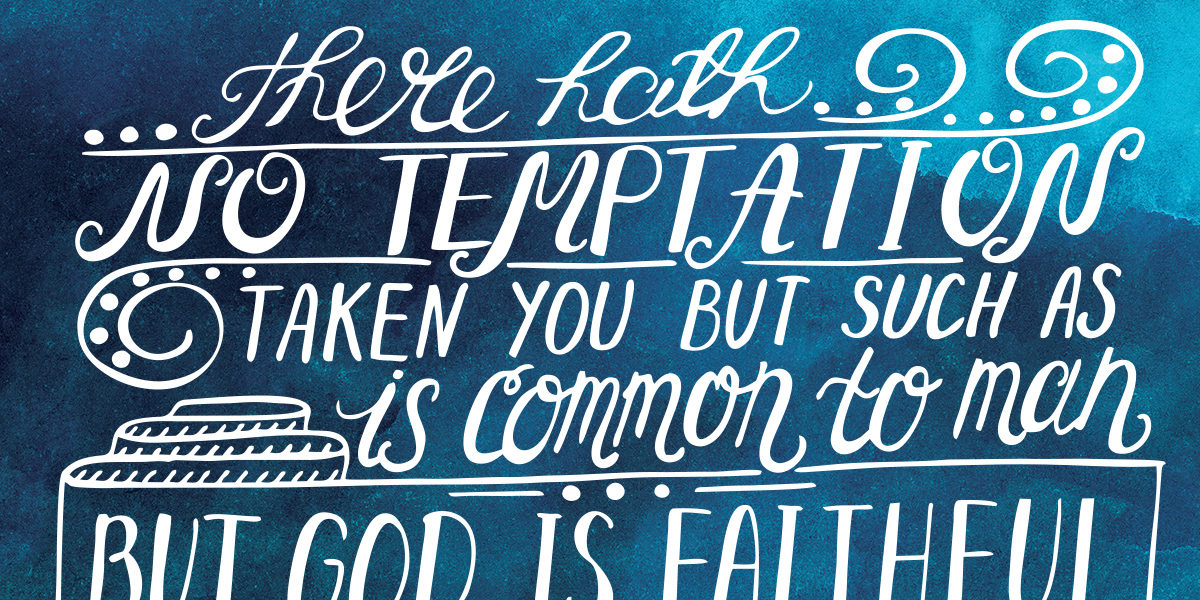 there hath
NO TEMPTATION
TAKEN YOU BUT SUCH AS
is common to man
BUT GOD IS FAITHFUL